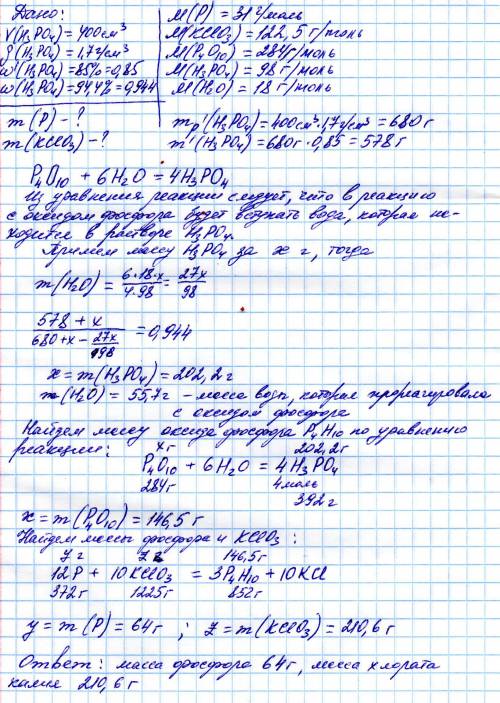 Дано:
V(H₃PO₄) = 400 см³
ρ(H₃PO₄) = 1,7 г/см³
w'(H₃PO₄) = 85% = 0,85
w(H₃PO₄) = 94,4% = 0,944
m(P) - ?
m(KClO₃) - ?
M(P) = 31 г/моль
M(KClO₃) = 122,5 г/моль
M(P₄O₁₀) = 284 г/моль
M(H₃PO₄) = 98 г/моль
M(H₂O) = 18 г/моль
mр'(H₃PO₄) = 400см³·1,7г/см³ = 680 г
m'(H₃PO₄) = 680г·0,85 = 578 г
P₄O₁₀ + 6H₂O = 4H₃PO₄
Из уравнения реакции следует, что в реакцию
с оксидом фосфора будет вступать вода, которая на-
ходится в растворе H₃PO₄.
Примем массу H₃PO₄ за x г, тогда
m(H₂O) = 6·18·x/4·98 = 27x/98
578 + x / 680 + x - 27x/98 = 0,944
x = m(H₃PO₄) = 202,2 г
m(H₂O) = 55,7 г - масса воды, которая прореагировала
с оксидом фосфора
Найдем массу оксида фосфора P₄H₁₀ по уравнению
реакции: x г 202,2г
P₄O₁₀ + 6H₂O = 4H₃PO₄
284г 4моль
392г
x = m(P₄O₁₀) = 146,5 г
Найдем массы фосфора и KClO₃:
y г z г 146,5г
12P + 10KClO₃ = 3P₄H₁₀ + 10KCl
372г 1225г 852г
y = m(P) = 64г ; z = m(KClO₃) = 210,6 г
Ответ: масса фосфора 64 г, масса хлората
калия 210,6 г